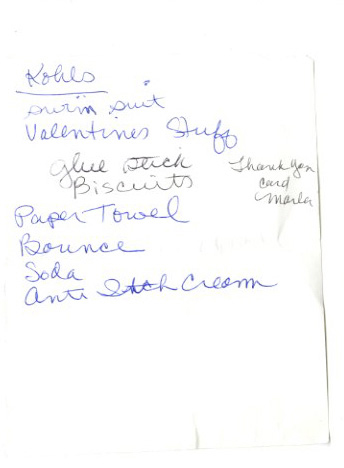 Kohls
swim suit
Valentines Stuff
glue stick
Biscuits
Thank you
card
Marla
Paper Towel
Bounce
Soda
Anti Itch Cream